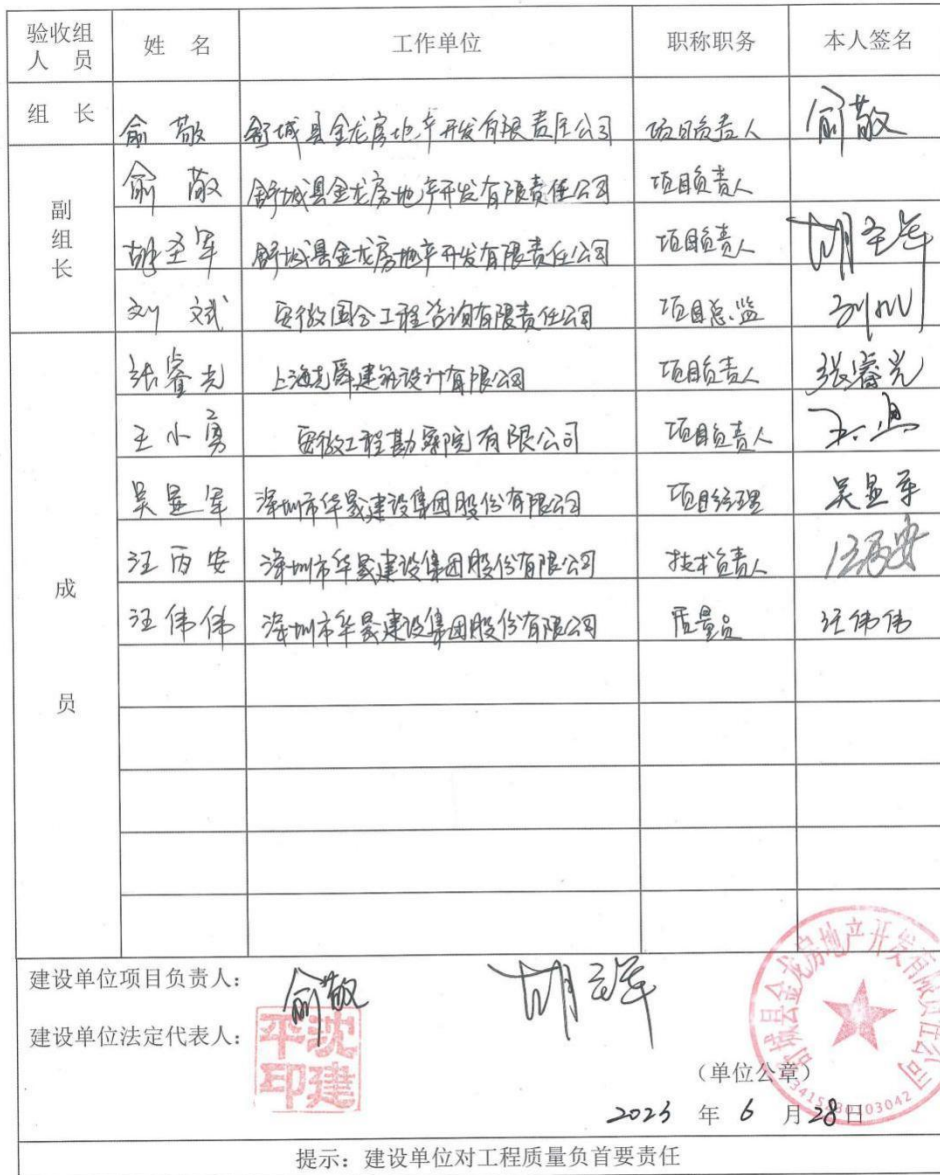 验收组人员 姓 名 工作单位 职称职务 本人签名
组 长 俞敬 舒城县金龙房地产开发有限责任公司 项目负责人 俞敬
副组长 俞敬 舒城县金龙房地产开发有限责任公司 项目负责人
胡圣军 舒城县金龙房地产开发有限责任公司 项目负责人 胡圣军
刘斌 安徽国合工程咨询有限责任公司 项目总监
成员 张睿光 上海尧舜建筑设计有限公司 项目负责人 张睿光
王小勇 安徽工程勘察院有限公司 项目负责人
吴显军 深圳市华晟建设集团股份有限公司 项目经理 吴显军
汪丙安 深圳市华晟建设集团股份有限公司 技术负责人 汪丙安
汪伟伟 深圳市华晟建设集团股份有限公司 质量员 汪伟伟
建设单位项目负责人： 俞敬 胡圣军
建设单位法定代表人： 沈建平印
舒城县金龙房地产开发有限责任公司
（单位公章）
2023 年 6 月 28 日
提示：建设单位对工程质量负首要责任